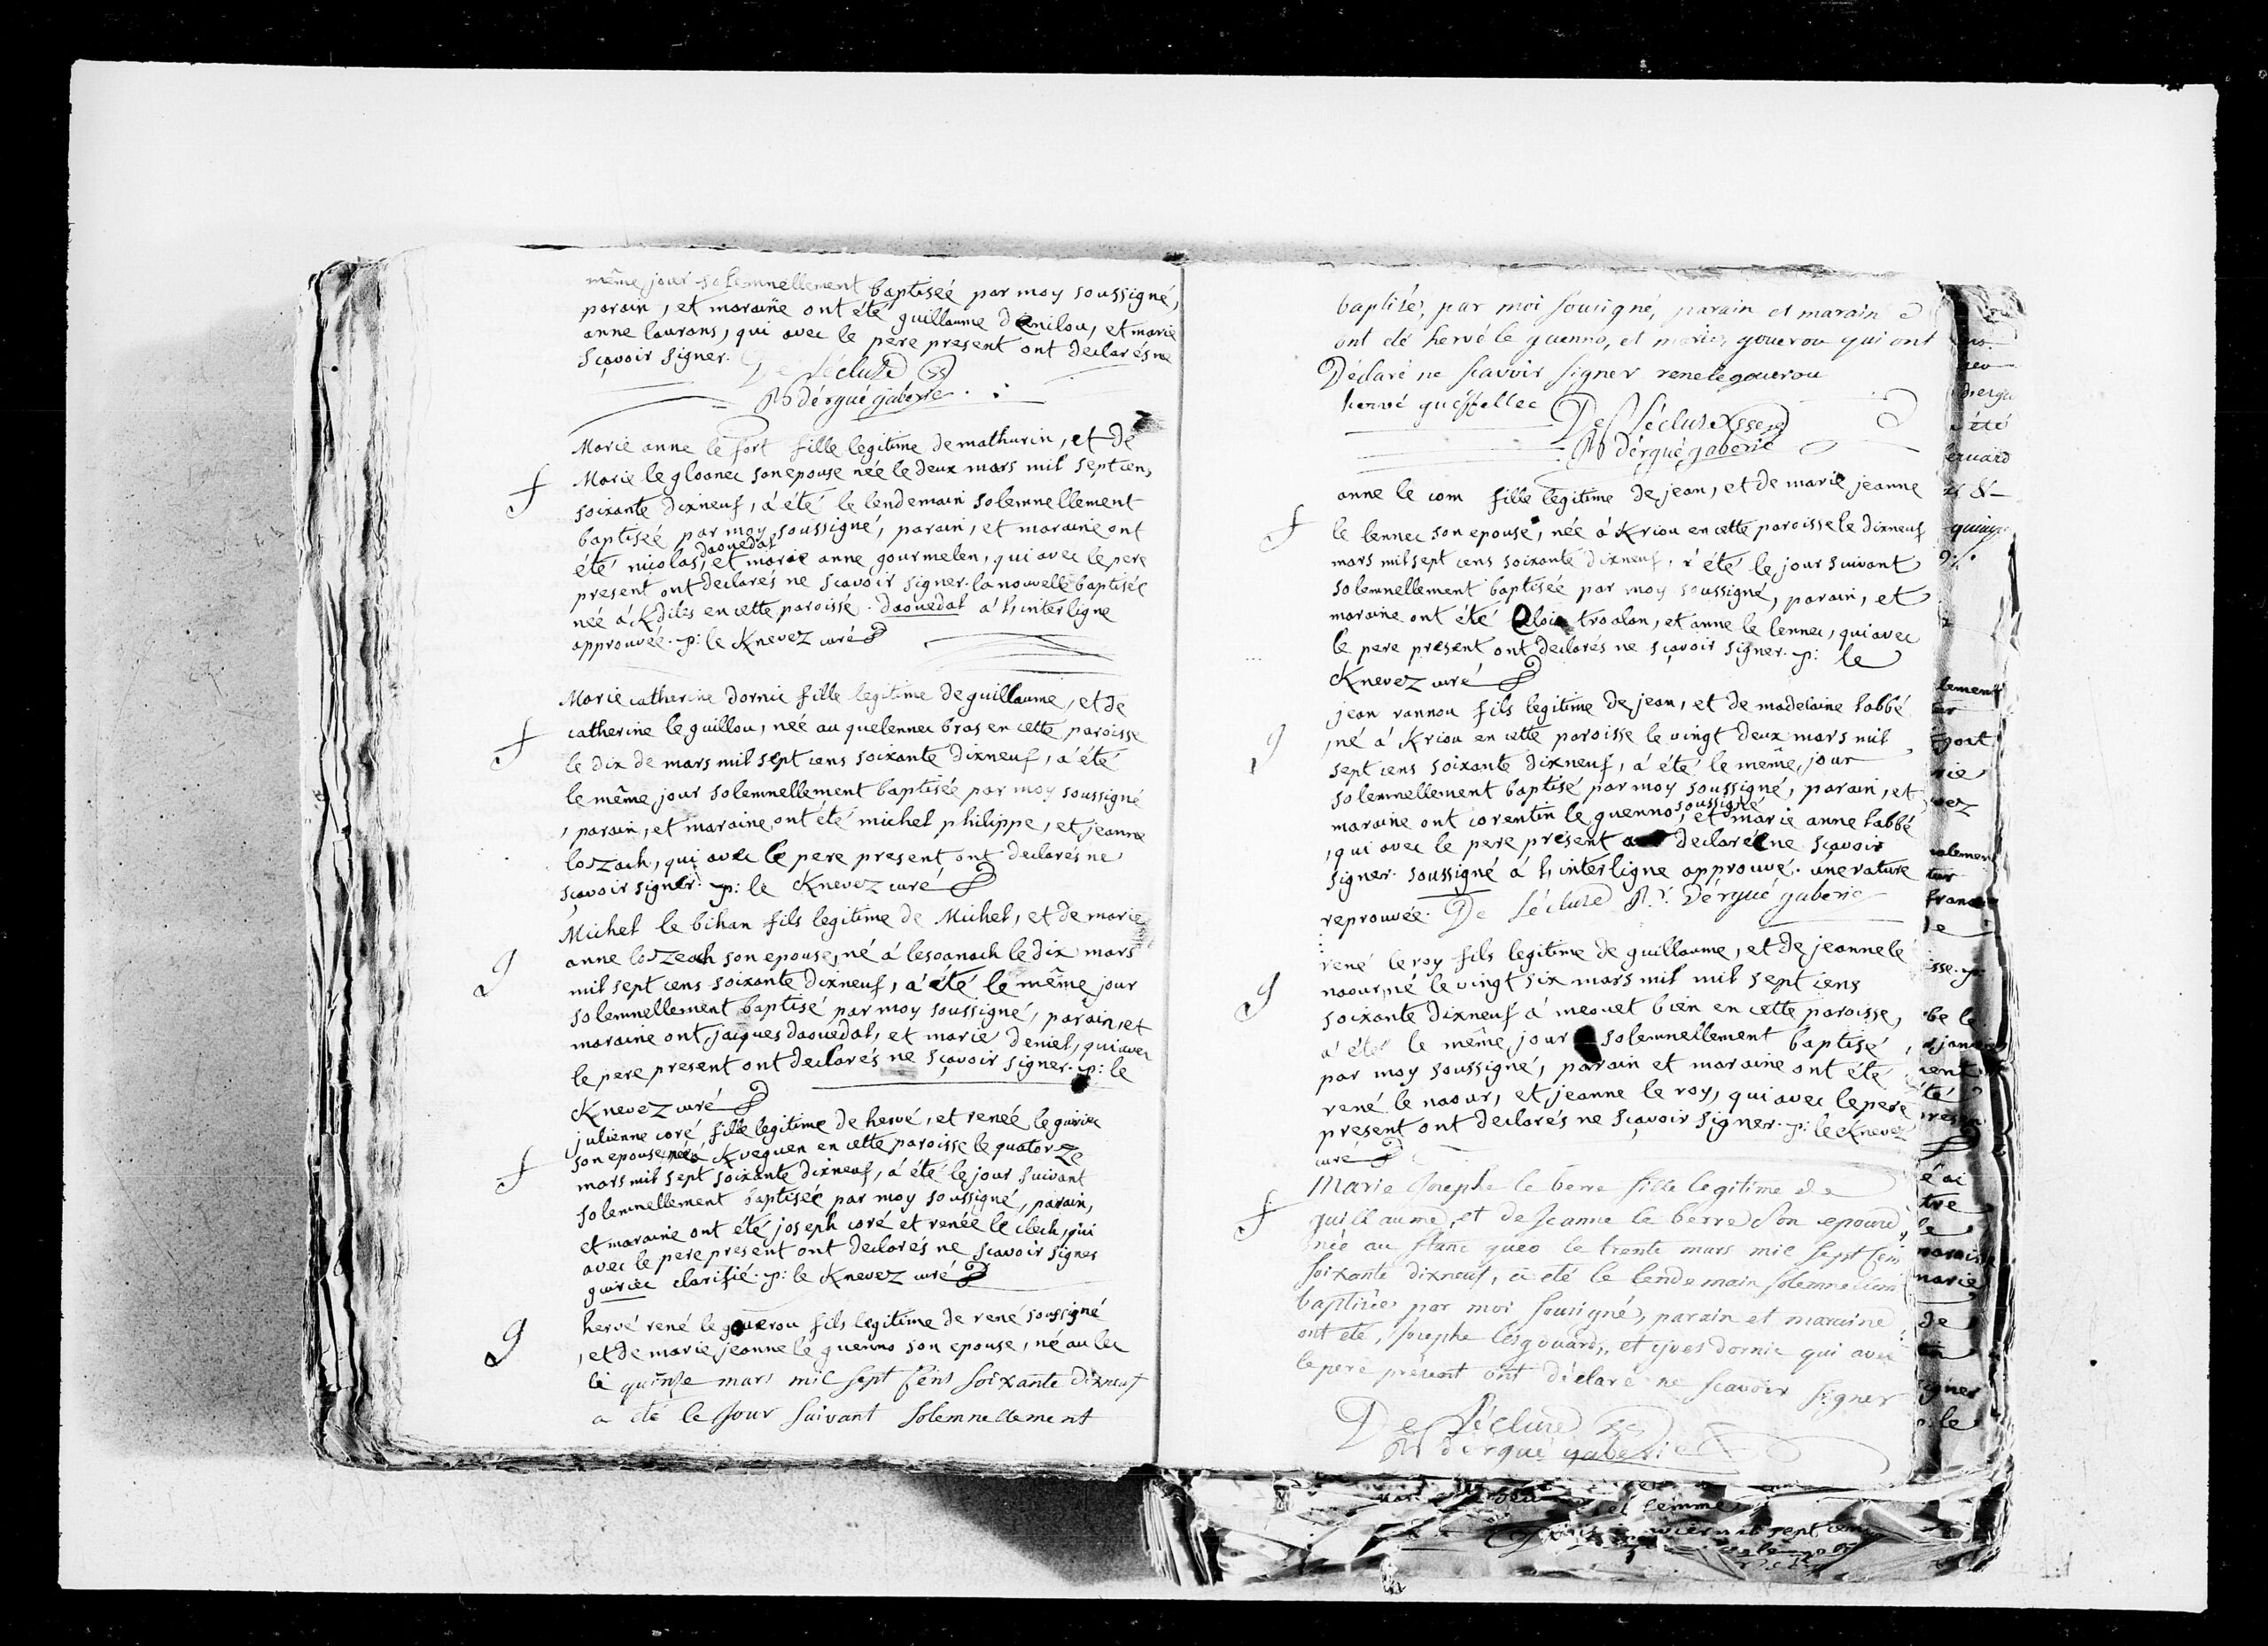 même jour solemnellement baptiseé par moy soussigné,
parain, et maraine ont été guillaume denilou, et marie
anne laurans, qui avec le pere present ont declarés ne
sçavoir signer.
De Lécluse
Rr dérgué gaberie
Marie anne le fort fille legitime de mathurin, et de
f
Marie le gloanec son epouse née le deux mars mil sept cens
soixante dixneuf, a été le lendemain solemnellement
baptiseé par moy soussigné, parain, et maraine ont
daouedal
été nicolas, et marie anne gourmelen, qui avec le pere
present ont declarés ne sçavoir signer. la nouvelle baptisée
née á Kdilés en cette paroisse. daouedal á l'interligne
approuvée. p: le Knevez curé
Marie catherine dornic fille legitime de guillaume, et de
f
catherine le guillou, neé au quelennec bras en cette paroisse
le dix de mars mil sept cens soixante dixneuf, á été
le même jour solemnellement baptisée par moy soussigné
, parain, et maraine ont été michel philippe, et jeanne
lozach, qui avec le pere present ont declarés ne
sçavoir signer. p: le Knevez curé
Michel le bihan fils legitime de Michel, et de marie
g
anne lozeach son epouse, né á lesoanach le dix mars
mil sept cens soixante dixneuf, á été le même jour
solemnellement baptisé par moy soussigné, parain, et
maraine ont, jacques daouedal, et marie deniel, qui avec
le pere present ont declarés ne sçavoir signer. p: le
Knevez curé
julienne coré, fille legitime de hervé, et reneé le guiriec
f
son epouse, née á Kveguen en cette paroisse le quatorze
mars mil sept soixante dixneuf, á été le jour suivant
solemnellement baptisée par moy soussigné, parain,
et maraine ont été joseph coré et renée le clech, qui
avec le pere present ont declarés ne sçavoir signer
guiriec clarifié. p: le Knevez curé
hervé rené le gouerou fils legitime de rené soussigné
g
, et de marie jeanne le guenno son epouse, né au lec
le quinze mars mil sept cens soixante dixneuf
a été le jour suivant solemnellement
baptisé, par moi sousigné, parain et maraine
ont été hervé le guenno, et marie gouerou qui ont
Déclaré ne sçavoir signer rene le gouerou
hervé guéffellec
De Lécluse
Rr dérgué gaberie
anne le com fille legitime de jean, et de marie jeanne
f
le lennec son epouse, née á Kriou en cette paroisse le dixneuf
mars mil sept cens soixante dixneuf, á été le jour suivant
solemnellement baptisée par moy soussigné, parain, et
maraine ont été troalen, et anne le lennec, qui avec
le pere present ont declarés ne sçavoir signer. p: le
Knevez curé
jean rannou fils legitime de jean, et de madelaine labbé
g
, né á Kriou en cette paroisse le vingt deux mars mil
sept cens soixante dixneuf, á été le même jour
solemnellement baptisé par moy soussigné, parain, et
soussigné
maraine ont corentin le guenno, et marie anne labbé
, qui avec le pere present declaré ne sçavoir
signer. soussigné á l'interligne approuvé. une rature
reprouvée. De Lécluse Rr. dérgué gaberie
rené le roy fils legitime de guillaume, et de jeanne le
g
naour, né le vingt six mars mil mil sept cens
soixante dixneuf á meouet bien en cette paroisse,
á été le même jour solemnellement baptisé
par moy soussigné, parain et maraine ont été
rené le naour, et jeanne le roy, qui avec le pere
present ont declarés ne sçavoir signer. p: le Knevez
curé
Marie Josephe le berre fille legitime de
f
guillaume, et de Jeanne le berre son epouse,
née au stanc queo le trente mars mil sept cens
soixante dixneuf, a été le lendemain solemnellement
baptisée par moi sousigné, parain et maraine
ont été, Josephe et yves dornic qui avec
le pere présent ont déclaré ne sçavoir signer
De Lécluse
Rr dérgué gaberie